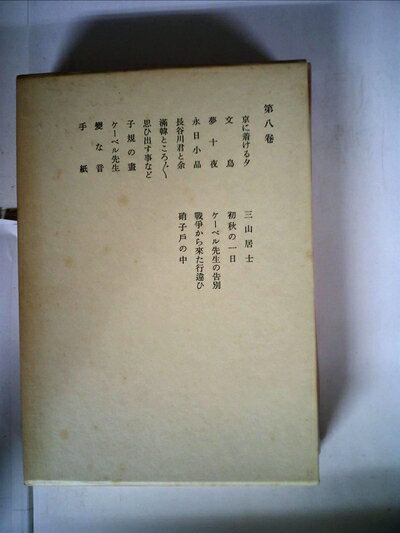 第八卷
京に着ける夕
文鳥
夢十夜
永日小品
長谷川君と余
滿韓ところ〴〵
思ひ出す事など
子規の畫
ケーベル先生
變な音
手紙
三山居士
初秋の一日
ケーベル先生の告別
戰爭から來た行違ひ
硝子戸の中